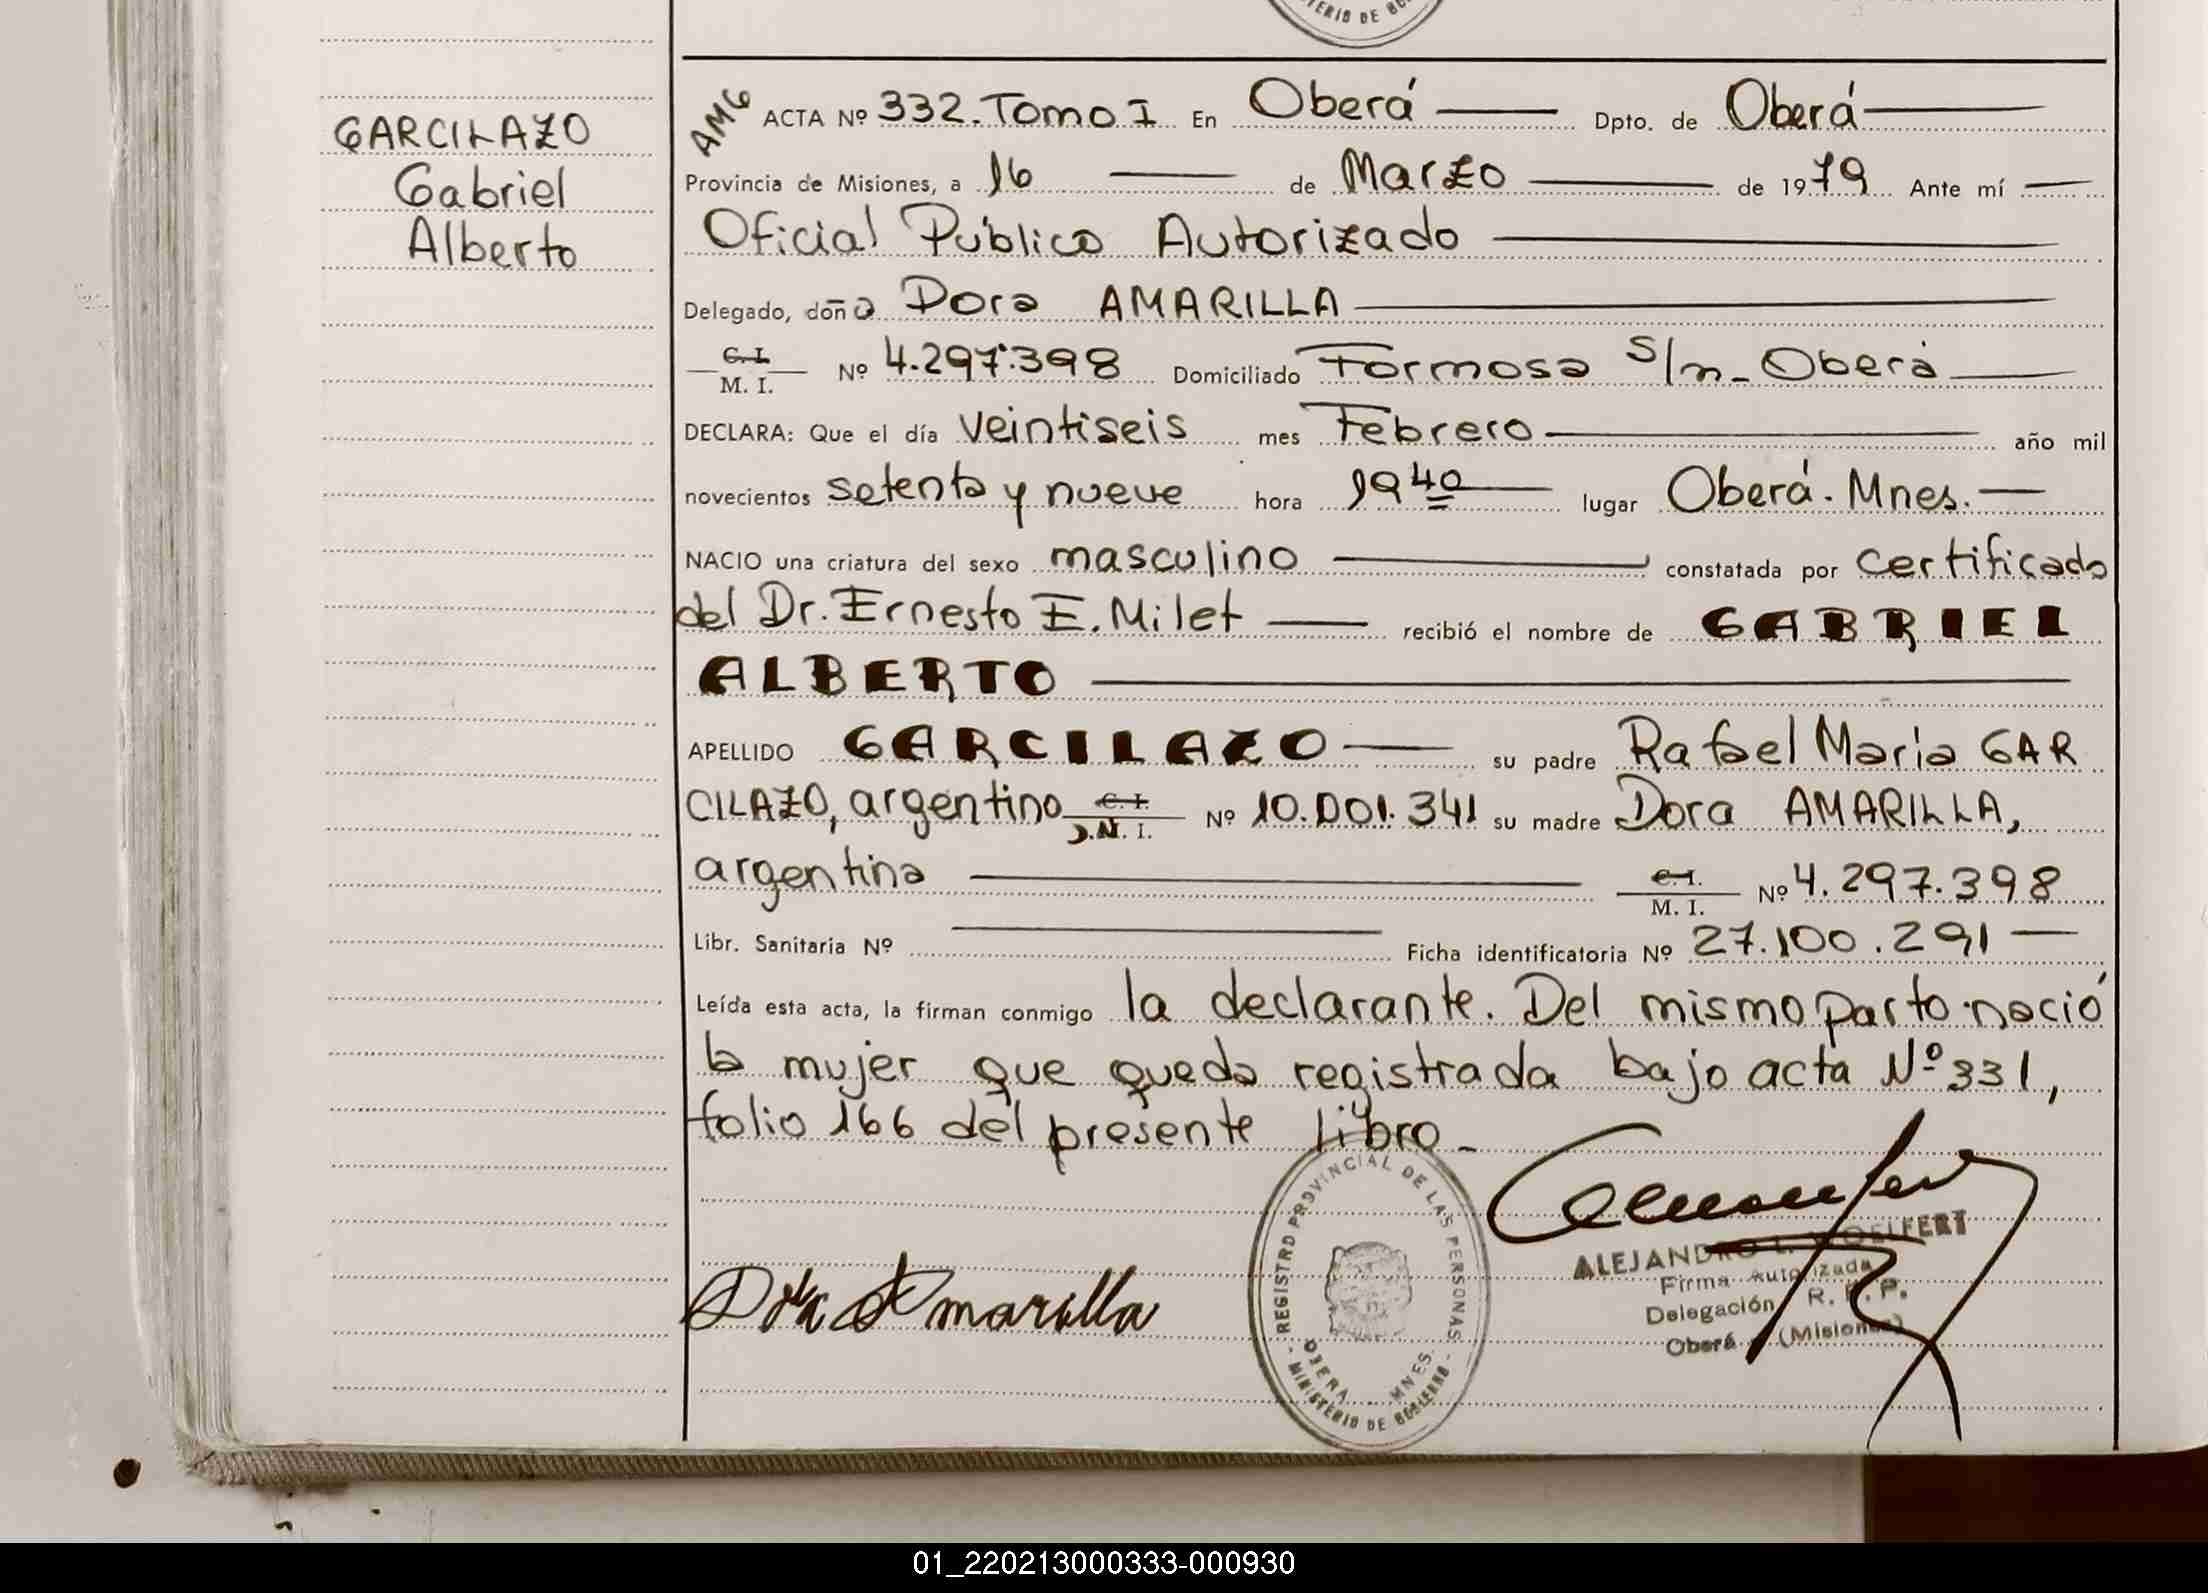 TERIO DE GOB
GARCILAZO
Gabriel
Alberto
AMG
ACTA Nº 332. Tomo I En Oberá Dpto. de Oberá
Provincia de Misiones, a 16 de Marzo de 1979 Ante mí
Oficial Público Autorizado
Delegado, doña Dora AMARILLA
C. I.
M. I. Nº 4.297.398 Domiciliado Formosa S/n - Oberá
DECLARA: Que el día veintiseis mes Febrero año mil
novecientos setenta y nueve hora 19 40 lugar Oberá. Mnes.
NACIO una criatura del sexo masculino constatada por certificado
del Dr. Ernesto E. Milet recibió el nombre de GABRIEL
ALBERTO
APELLIDO GARCILAZO su padre Rafael Maria GAR
CILAZO, argentino C. I. D.N. I. Nº 10.001.341 su madre Dora AMARILLA,
argentina C. I. M. I. Nº 4.297.398
Libr. Sanitaria Nº Ficha identificatoria Nº 27.100.291
Leída esta acta, la firman conmigo la declarante. Del mismo parto nació
la mujer que queda registrada bajo acta Nº 331,
folio 166 del presente libro -
REGISTRO PROVINCIAL DE LAS PERSONAS
OBERA MNES.
MINISTERIO DE GOBIERNO
Dora Amarilla
ALEJANDRO L. WOELFERT
Firma Autorizada
Delegación R. P. P.
Oberá (Misiones)
01_220213000333-000930